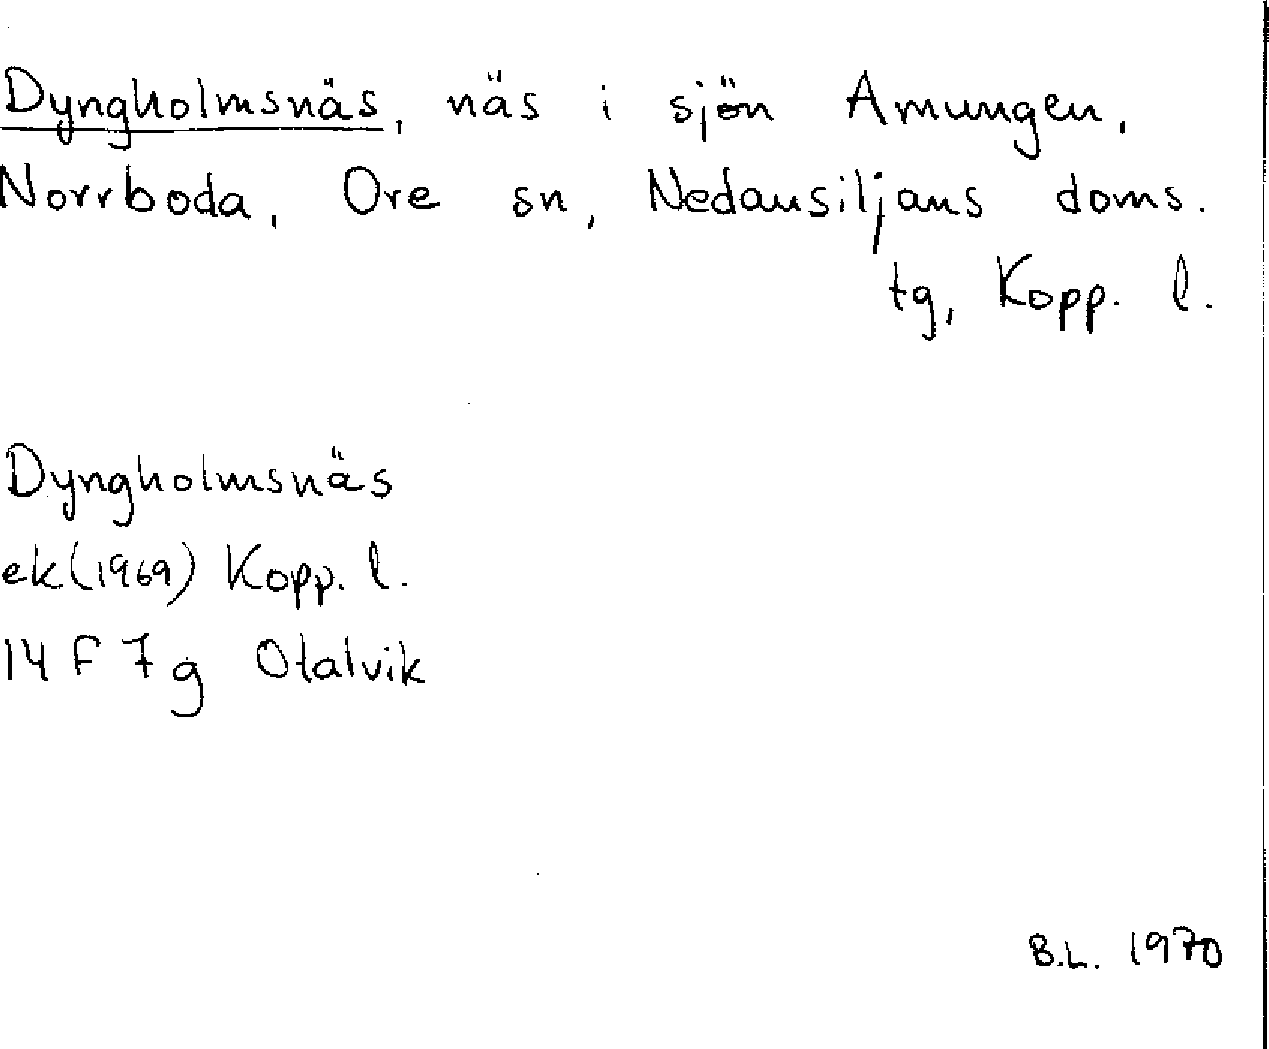 Dyngholmsnäs, näs i sjön Amungen,
Norrboda, Ore sn, Nedansiljans doms.
tg, Kopp. l.
Dyngholmsnäs
ek(1969) Kopp. l.
14 F 7 g Otalvik
B.L. 1970